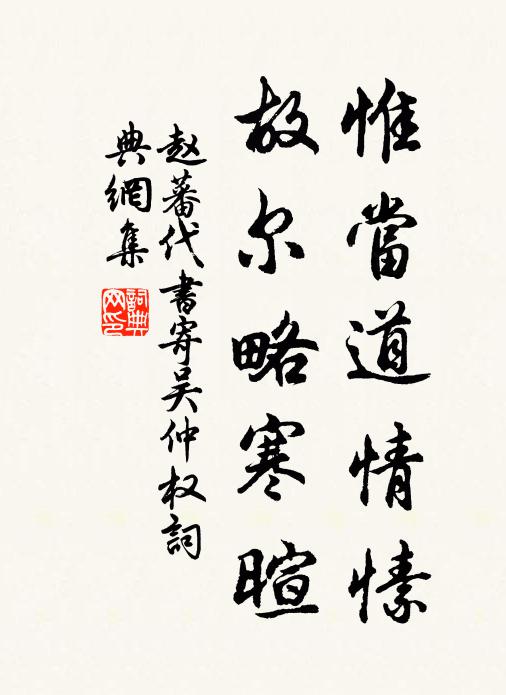 惟當道情愫
故尔略寒暄
赵蕃代書寄吴仲权詞
典網集
詞典网印